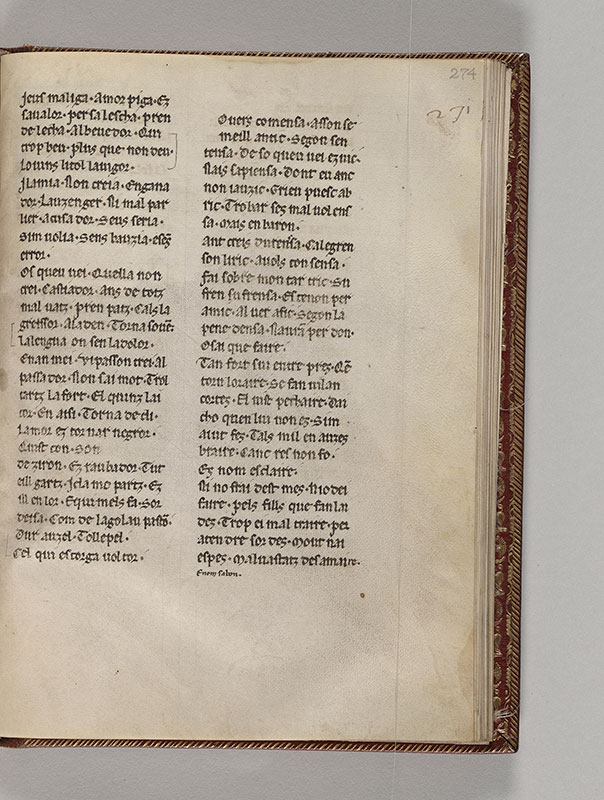 274
271
jeus maliga · Amor piga · Ez
saualor · per sa lescha · pren
de lecha · Al beuedor · Qui
trop beu · plus que non deu ·
Louins litol lauigor ·
Jlamia · Non creia · Engana
dor · Lauzenger · Ni mal par
lier · acusador · Seus seria ·
Sim uolia · Sens bauzia · eses
error ·
Os queu uei · Quella non
crei · Castiador · ans de totz
mal uatz · pren patz · Cals la
greissor · Aladen · Torna souen
Lalengua on sen ladolor ·
Enan mei · Vi passon crei · Al
passador · Non sai mot · Trol
tartz la fort · El quinz lai
cor · En aissi · Torna de cli ·
Lamor ez tornar negror ·
Quist con · son
de ziron · Ez raubador · Tut
cill gartz · Jcla mo partz · Ez
ill en lor · Equi mels fa · Sor
deisa · Com de lagolau passon ·
Dur auzel · Tollepel ·
Cel qui escorga uoltor ·
Ouers comensa · Asson se
meill antic · Segon sen
tensa · De so queu uei ez uic ·
Nais sapiensa · Dont eu anc
non iauzic · Grieu puesc ab
ric · Trobar ses mal uolens
sa · Mais en baron ·
Ant creis durensa · Calegren
son liric · auols consensa ·
Fai sobre mon tar tric · Su
fren sufrensa · Estenon per
amic · Al uer afic · Segon la
penedensa · Naura per don ·
Osai que faire ·
Tan fort sui entre prez · Que
torn loraire · Se fan uilan
cortes · El iust pechaire · Dai
cho quen lui non ez · Sim
aiut fez · Tals mil en auzez
braire · Canc res non fo ·
Ez nom esclaire ·
Ni no frai dest mes · Nio dei
faire · pels fills que fan lai
dez · Trop ei mal traire · per
atendre sordez · Mout nai
espes · Maluastatz desamaire ·
Enom sabon ·